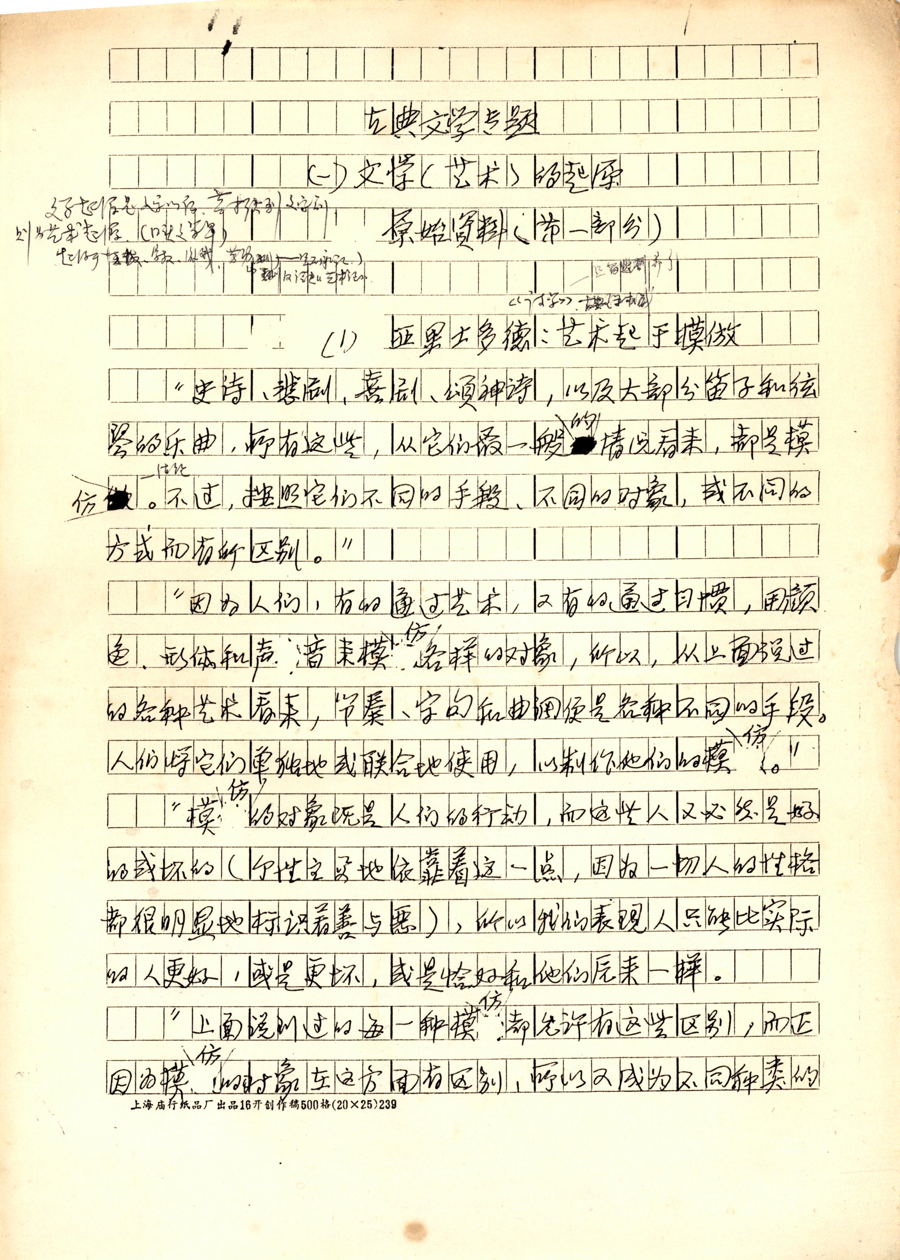 古典文学专题
(一)文学(艺术)的起源
原始资料(第一部分)
(1) 亚里士多德:艺术起于模仿
"史诗、悲剧、喜剧、颂神诗,以及大部分笛子和弦
琴的乐曲,所有这些,从它们最一般的情况看来,都是模
仿。不过,按照它们不同的手段、不同的对象,或不同的
方式而有所区别。"
"因为人们,有的通过艺术,又有的通过习惯,用颜
色、形体和声音来模仿各样的对象,所以,从上面说过
的各种艺术看来,节奏、字句和曲调便是各种不同的手段。
人们将它们单独地或联合地使用,以制作他们的模仿。"
"模仿的对象既是人们的行动,而这些人又必然是好
的或坏的(个性主要地依靠着这一点,因为一切人的性格
都很明显地标识着善与恶),所以我们表现人只能比实际
的人更好,或是更坏,或是恰好和他们原来一样。
"上面说到过的每一种模仿都允许有这些区别,而正
因为模仿的对象在这方面有区别,所以又成为不同种类的
上海庙行纸品厂出品16开创作稿500格(20×25)239